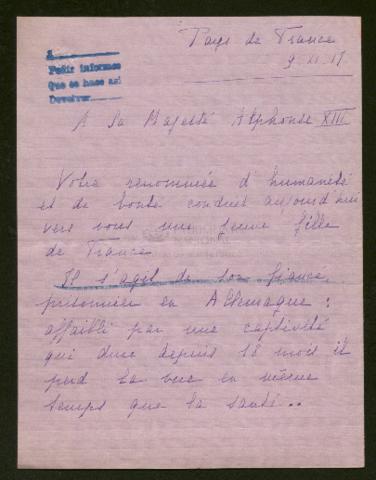 Pays de France
9.XI.17
A
Pedir informes
Que se hace así
Devolver
A Sa Majesté Alphonse XIII
Votre renommée d'humanité
et de bonté conduit aujourd'hui
vers vous une jeune fille
de France
Il s'agit de son fiancé,
prisonnier en Allemagne :
affaibli par une captivité
qui dure depuis 18 mois il
perd la vue en même
temps que la santé..